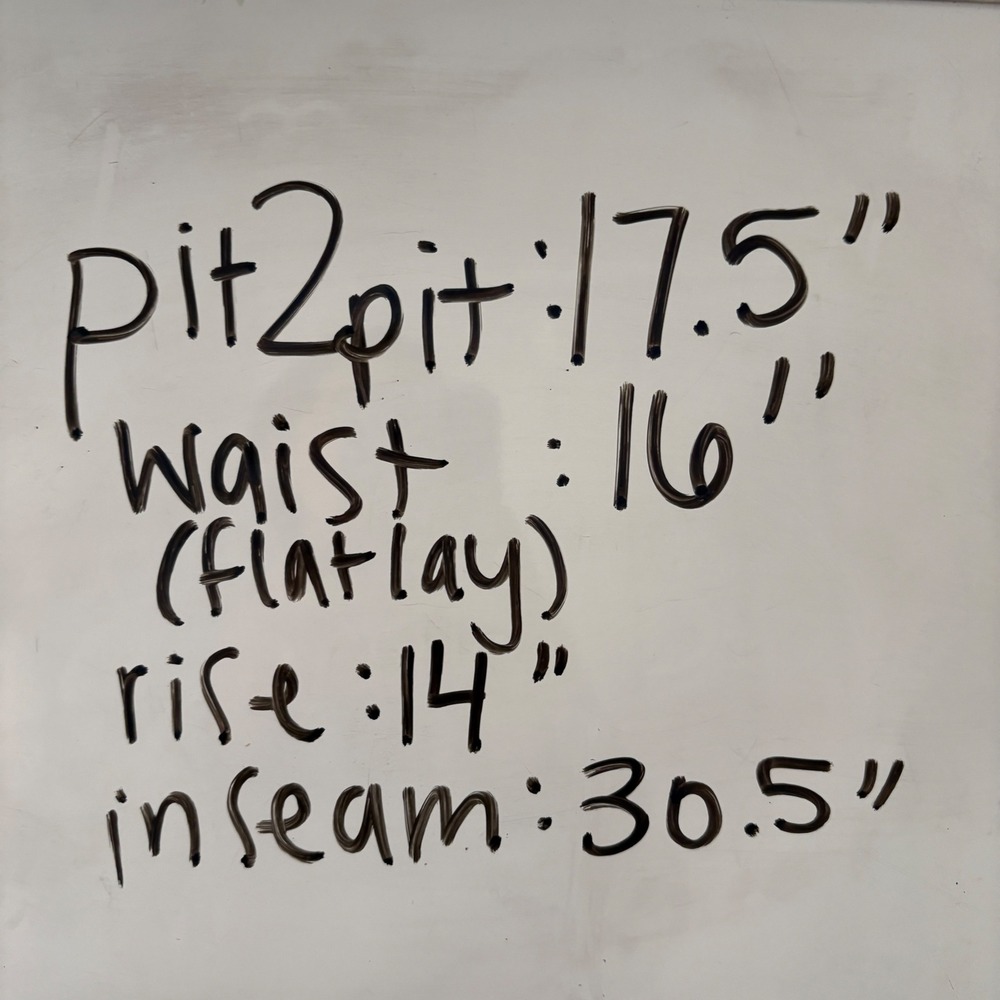 pit2pit:17.5"
waist :16"
(flatlay)
rise:14"
inseam:30.5"